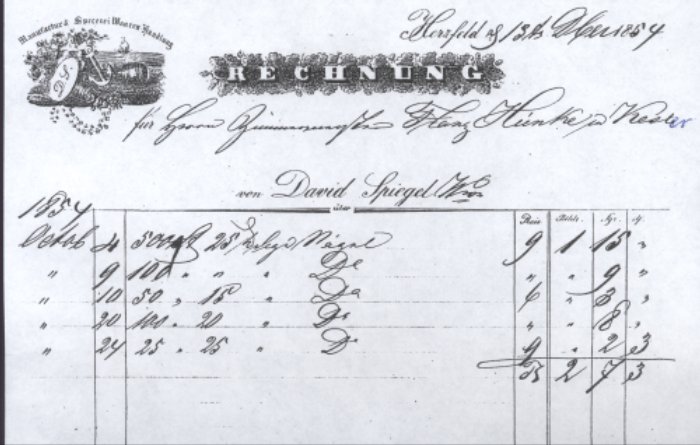 Manufactur & Specerei Waaren Handlung
D.S.
Herzfeld 13t 1854
RECHNUNG
für Herrn Franz Hünke in
von David Spiegel Wwe
über
1854
Preis Rthlr. Sgr. ₰
Octob 4 500 25 Nägel 9 1 15 "
" 9 100 " " " Do " " 9 "
" 10 50 " 15 " Do 6 " 3 "
" 20 100 " 20 " Do " " 8 "
" 24 25 " 25 " Do 9 " 2 3
2 7 3